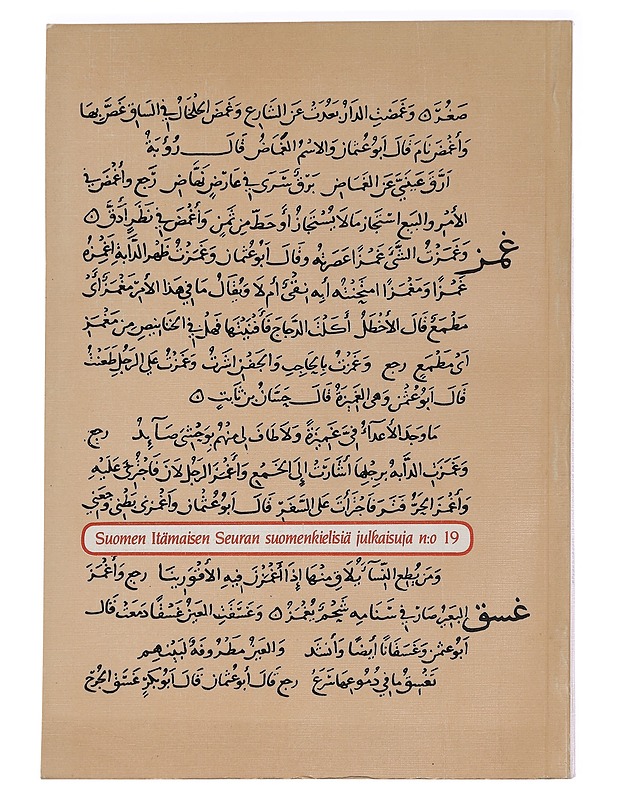 صغُرَ ۵ وغَمَضَتِ الدارُ بَعُدَتْ عَنِ الشَّارِعِ وغَمَضَ الخَلخَالُ في السَّاقِ غَصَّ بها
وأغمَضَ نَامَ قَالَ أبوعُثمان والاسْمُ الغُمَاضُ قَالَ رُؤبَةُ
أرَّقَ عَيْنَيَّ عَنِ الغُمَاضِ بَرْقٌ سَرَى في عَارِضٍ نَهَّاضِ رَجع وأغْمَضَ في
الأمْرِ والبَيعِ اسْتَجَازَ مَا لا يُسْتَجَازُ أو حَطَّ مِنْ ثَمَنٍ وأغْمَضَ في نَظَرٍ أدَقَّ ۵
غمز
وَغَمَزْتُ الشَّئَ غَمْزًا عَصَرتُهُ وقَالَ أبوعُثمان وغَمَزْتُ ظَهْرَ الدَّابَةِ أغْمِزُهُ
غَمْزًا ومَغْمَزًا امتَحَنْتُه أبِهِ نِقْيٌ أم لا ويُقَالُ مَا في هذا الأمْرِ مَغْمَزٌ أيْ
مَطْمَعٌ قَالَ الأخطَلُ أكَلْتَ الدَّجَاجَ فَأفْنَيْتَها فَهَلْ في الخَنَانِيصِ مِن مَغْمَزِ
أيْ مَطْمَعٍ رجع وَغَمَزْتُ بالحَاجِبِ والجَفْنِ أشَرْتُ وغَمَزْتُ علي الرَّجُلِ طَعَنْتُ
قَالَ أبوعُثمٰن وهِيَ الغَمِيْزَةُ قَالَ حَسَّانُ بن ثَابتٍ ۵
مَا وَجَدَ الأعدَآءُ فيَّ غَمِيْزَةً ولا طَافَ لي مِنْهُم بِوَحْشِيَ صَآئدُ رجع
وَغَمَزَتِ الدَّابةُ بِرِجْلِها أشَارَتْ إلى الخَمْعِ وأغْمَزَ الرَّجُلُ لانَ فَاجْتُرِئَ عَلَيْهِ
وأغمَزَ الحَرُّ فَتَرَ فَاجتَرَأتَ عَلى السَّفَرِ قَالَ أبوعُثمان وأغْمَزَني بَطْني وجَعَني
Suomen Itämaisen Seuran suomenkielisiä julkaisuja n:o 19
ومَنْ يُطِعِ النِّسَآءَ يُلاقِ مِنْها إذَا أغْمَزْنَ فيهِ الأقْوَرِينَا رجع وأغْمَزَ
البَعِيرُ صَارَ في سَنَامِهِ شَحْمٌ يُغْمَزُ ۵ وغَسَقَتِ العَيْنُ غَسْقًا دَمَعَتْ قَالَ
غسق
أبوعثمٰن وغَسَقَانًا أيْضًا وأنشَدَ والعَيْنُ مَطْرُوفَةٌ لِبَيْنِهِم
تَغْسِقُ مَا في دُمُوعِها سَرَعُ رجع قَالَ أبوعُثمان قَالَ أبوبَكرٍ غَسَقَ الجُرْحُ